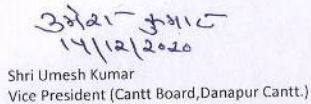 उमेश कुमार
14/12/2020
Shri Umesh Kumar
Vice President (Cantt Board,Danapur Cantt.)